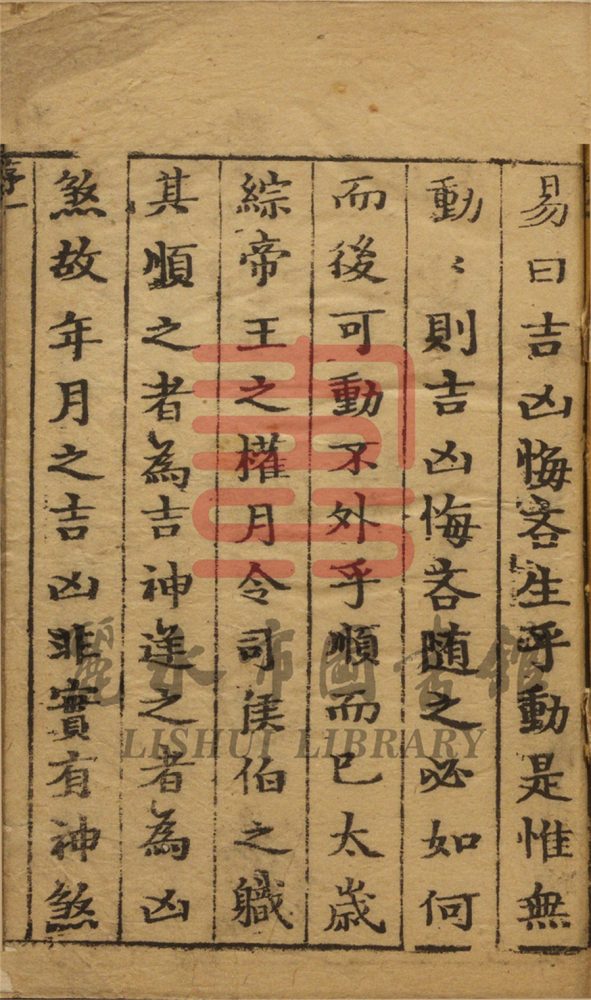 易曰吉凶悔吝生乎動是惟無
動〻則吉凶悔吝随之必如何
而後可動不外乎順而已太歳
綜帝王之權月令司侯伯之職
其順之者為吉神逆之者為凶
煞故年月之吉凶非實有神煞
序一
麗水市圖書館
LISHUI LIBRARY